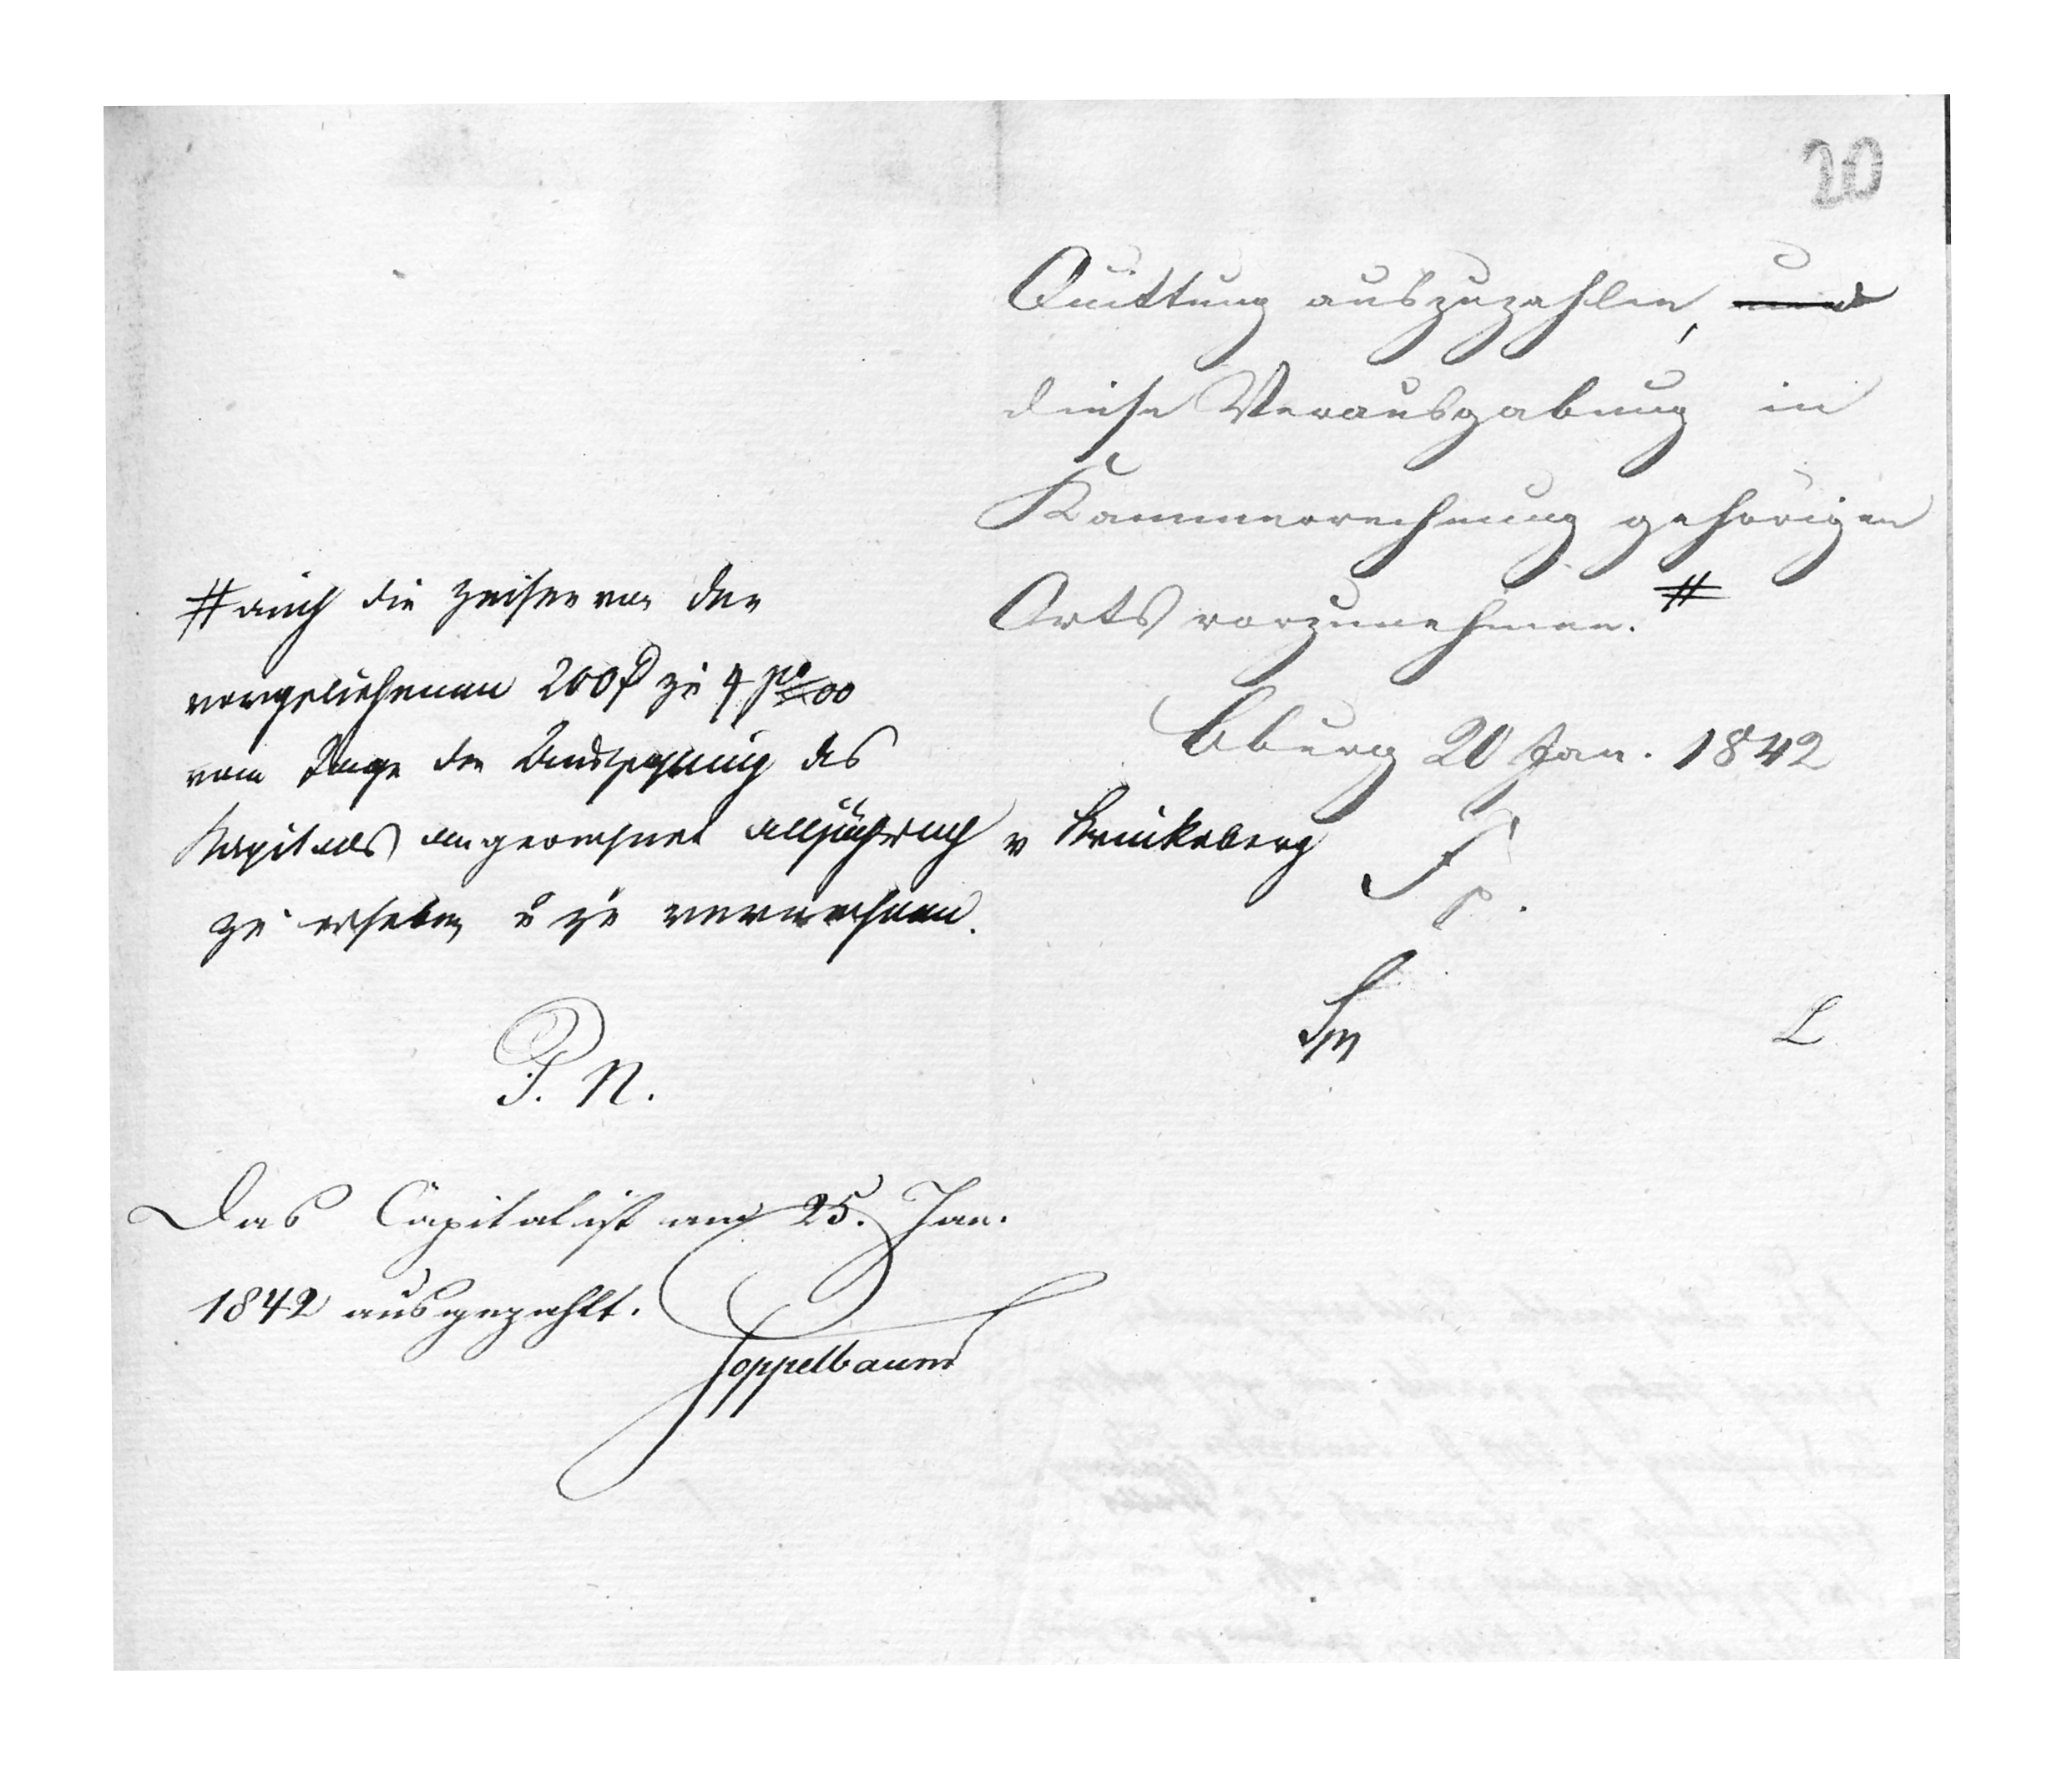 20
Quittung auszuzahlen, und
diese Verausgabung in
Kammerrechnung gehörigen
Orts vorzunehmen. #
Bburg 20 Jan. 1842
# auch die Zinsen von den
vorgeliehenen 200 f zu 4 pro 00
vom Tage der Auszahlung des
Kapitals angerechnet alljährlich
zu erheben u zu verrechnen.
v Strückeberg
P. N.
Das Capital ist am 25. Jan.
1842 ausgezahlt.
Poppelbaum